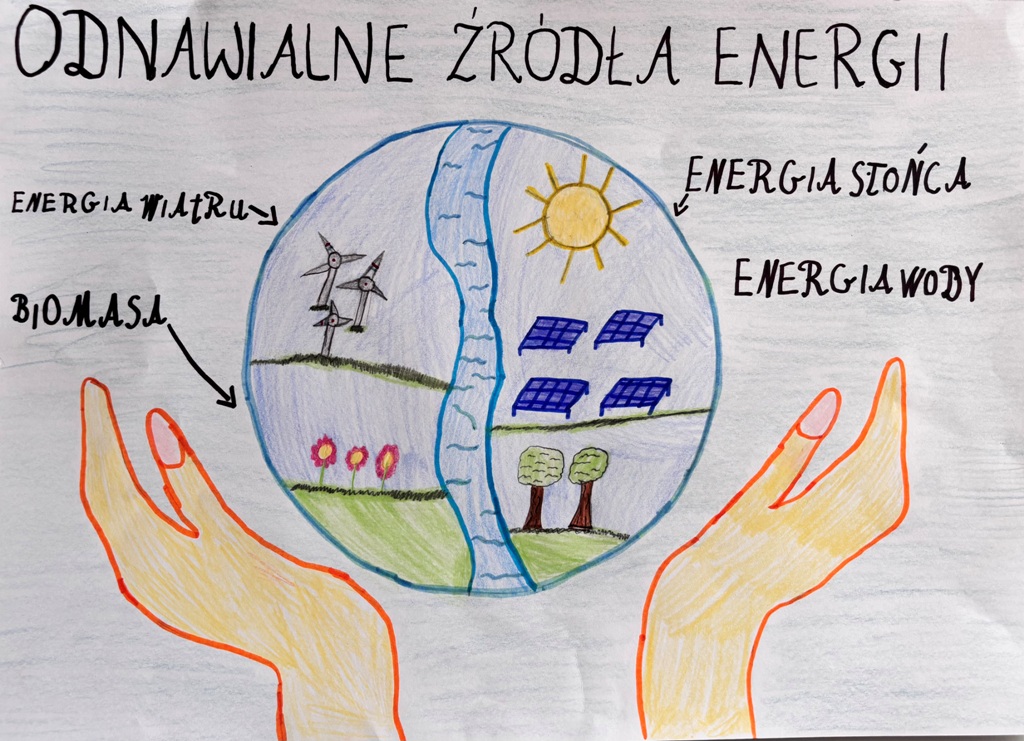 ODNAWIALNE ŹRÓDŁA ENERGII
ENERGIA WIATRU
BIOMASA
ENERGIA SŁOŃCA
ENERGIA WODY